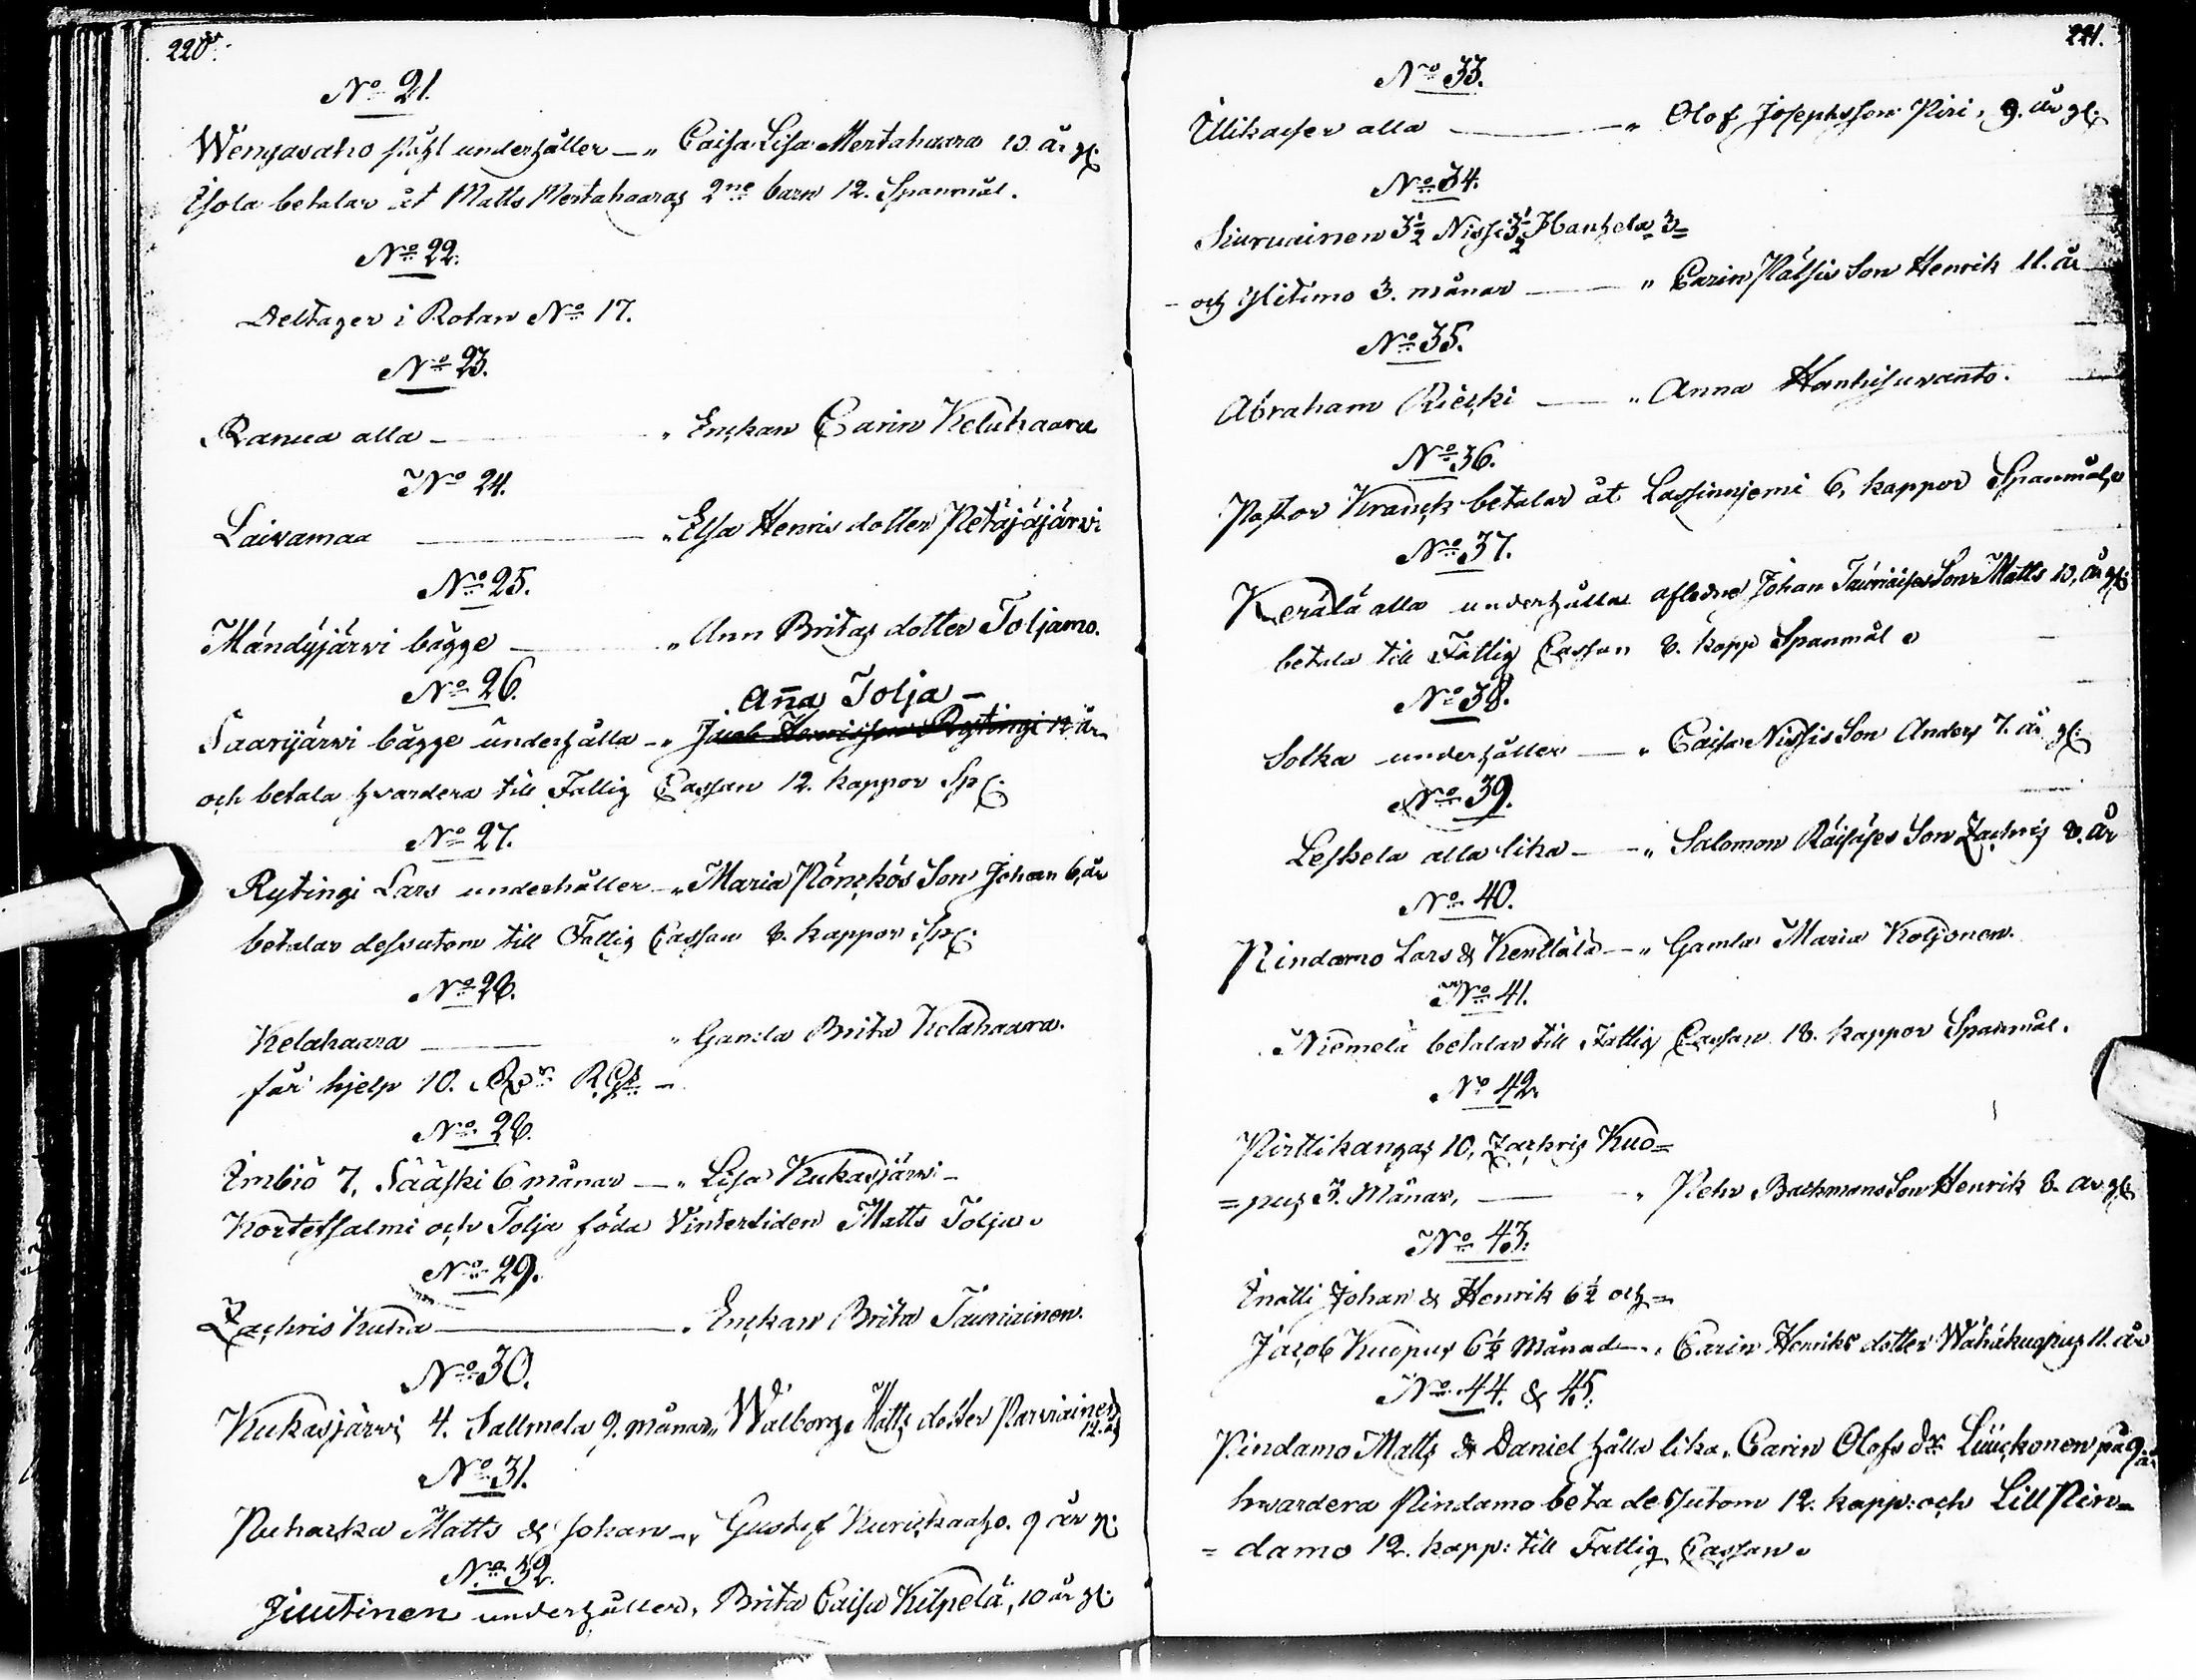 220.
No 21.
Wengasaho Påhl underhåller — " Caisa Lisa Mertahaara 10. år gl:
Ysola betalar åt Matts Mertahaaras 2ne barn 12. Spanmål.
No 22.
Deltager i Rotan No 17.
No 23.
Ranua alla — " Enckan Carin Keluhaara
No 24.
Laivamaa — " Elsa Henrisdotter Petäjäjärvi
No 25.
Mändyjärvi bägge — " Ann Britas dotter Toljamo.
No 26.
Anna Tolja —
Saarijärvi bägge underhålla — " Jacob Henrisson Rytingi 12 år
och betala hvardera till Fattig Cassan 12. kappor Sp:
No 27.
Rytingi Lars underhåller — " Maria Pönckös Son Johan 6, år
betalar dessutom till Fattig Cassan 8. kappor Sp:
No 28.
Kelahaara — " Gamla Brita Kelahaara.
får hjelp 10. RGs —
No 28.
Imbiö 7, Sääski 6 månar — " Lisa Kukasjärvi —
Kortetsalmi och Tolja föda Vintertiden Matts Tolja.
No 29.
Zachris Kuha — " Enckan Brita Tauriainen.
No 30.
Kukasjärvi 4. Sallmela 9. månar " Walborg Matts dotter Parviainen
12. år
No 31.
Puhacka Matts & Johan — " Gustaf Kurickaaho. 9 år gl:
No 32.
Juutinen underhåller, Brita Caisa Kilpelä, 10 år gl:
221.
No 33.
Ulikaiser alla — " Olof Josephsson Piri, 9. år gl:
No 34.
Siuruainen 3½ Nissi 3½ Hanhela 3 =
och Ylitimo 3. månar — " Carin Pätsis Son Henrik 11. år
No 35.
Abraham Riecki — " Anna Hanhisuvanto.
No 36.
Pastor Kranck betalar åt Lassinnjemi 6, kappor Spanmål,
No 37.
Kerälä alla underhålla aflednes Johan Tauriaises Son Matts 10, år gl:
betala till Fattig Cassan 8. kapp Spanmål
No 38.
Solka underhåller — " Caisa Nissis Son Anders 7. år gl:
No 39.
Leskela alla lika — " Salomon Räisäses Son Zachris 8. år
No 40.
Pindamo Lars & Kenttälä — " Gamla Maria Koljonen.
No 41.
Niemelä betalar till Fattig Cassan 18. kappor Spanmål.
No 42.
Pirttikangas 10, Zachris Kuo=
=pus 3. Månar, — " Pehr Backmans Son Henrik 8. år gl:
No 43.
Inatti Johan & Henrik 6½ och =
Jacob Kuopus 6½ Månad — " Carin Henriks dotter Wähäkuopus 11. år
No 44. & 45.
Pindamo Matts & Daniel hålla lika, Carin Olofs dr Liuckonen på 9. år
hvardera Pindamo beta dessutom 12. kapp: och Lill Pin=
= damo 12. kapp: till Fattig Cassan.